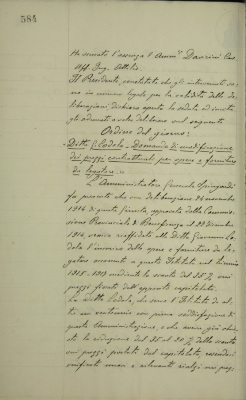 584
Ha scusato l'assenza l'Amm.re Daurini Cav.
Uff. Ing. Attilio.
Il Presidente, constatato che gli intervenuti sono
in numero legale per la validità delle de-
liberazioni, dichiara aperta la seduta ed invita
gli adunati a voler deliberare sul seguente
Ordine del giorno:
Ditta G. Lodola - Domanda di modificazione
dei prezzi contrattuali per opere e forniture
da legatore.
L'Amministratore Generale
fa presente che con deliberazione 24 novembre
1916 di questa Giunta, approvata dalla Commis-
sione Provinciale di Beneficenza il 22 dicembre
1916, veniva riaffidata alla Ditta Giovanni Lo-
dola l'incarico delle opere e forniture da le-
gatore occorrenti a questo Istituto nel biennio
1918-1919 mediante lo sconto del 25 % sui
prezzi fissati dall'apposito capitolato.
La Ditta Lodola, che serve l'Istituto da ol-
tre un ventennio con piena soddisfazione di
questa Amministrazione, e che aveva già chie-
sto la riduzione dal 25 al 20 % dello sconto
sui prezzi portati dal capitolato, essendosi
verificati rialzi nei prez-